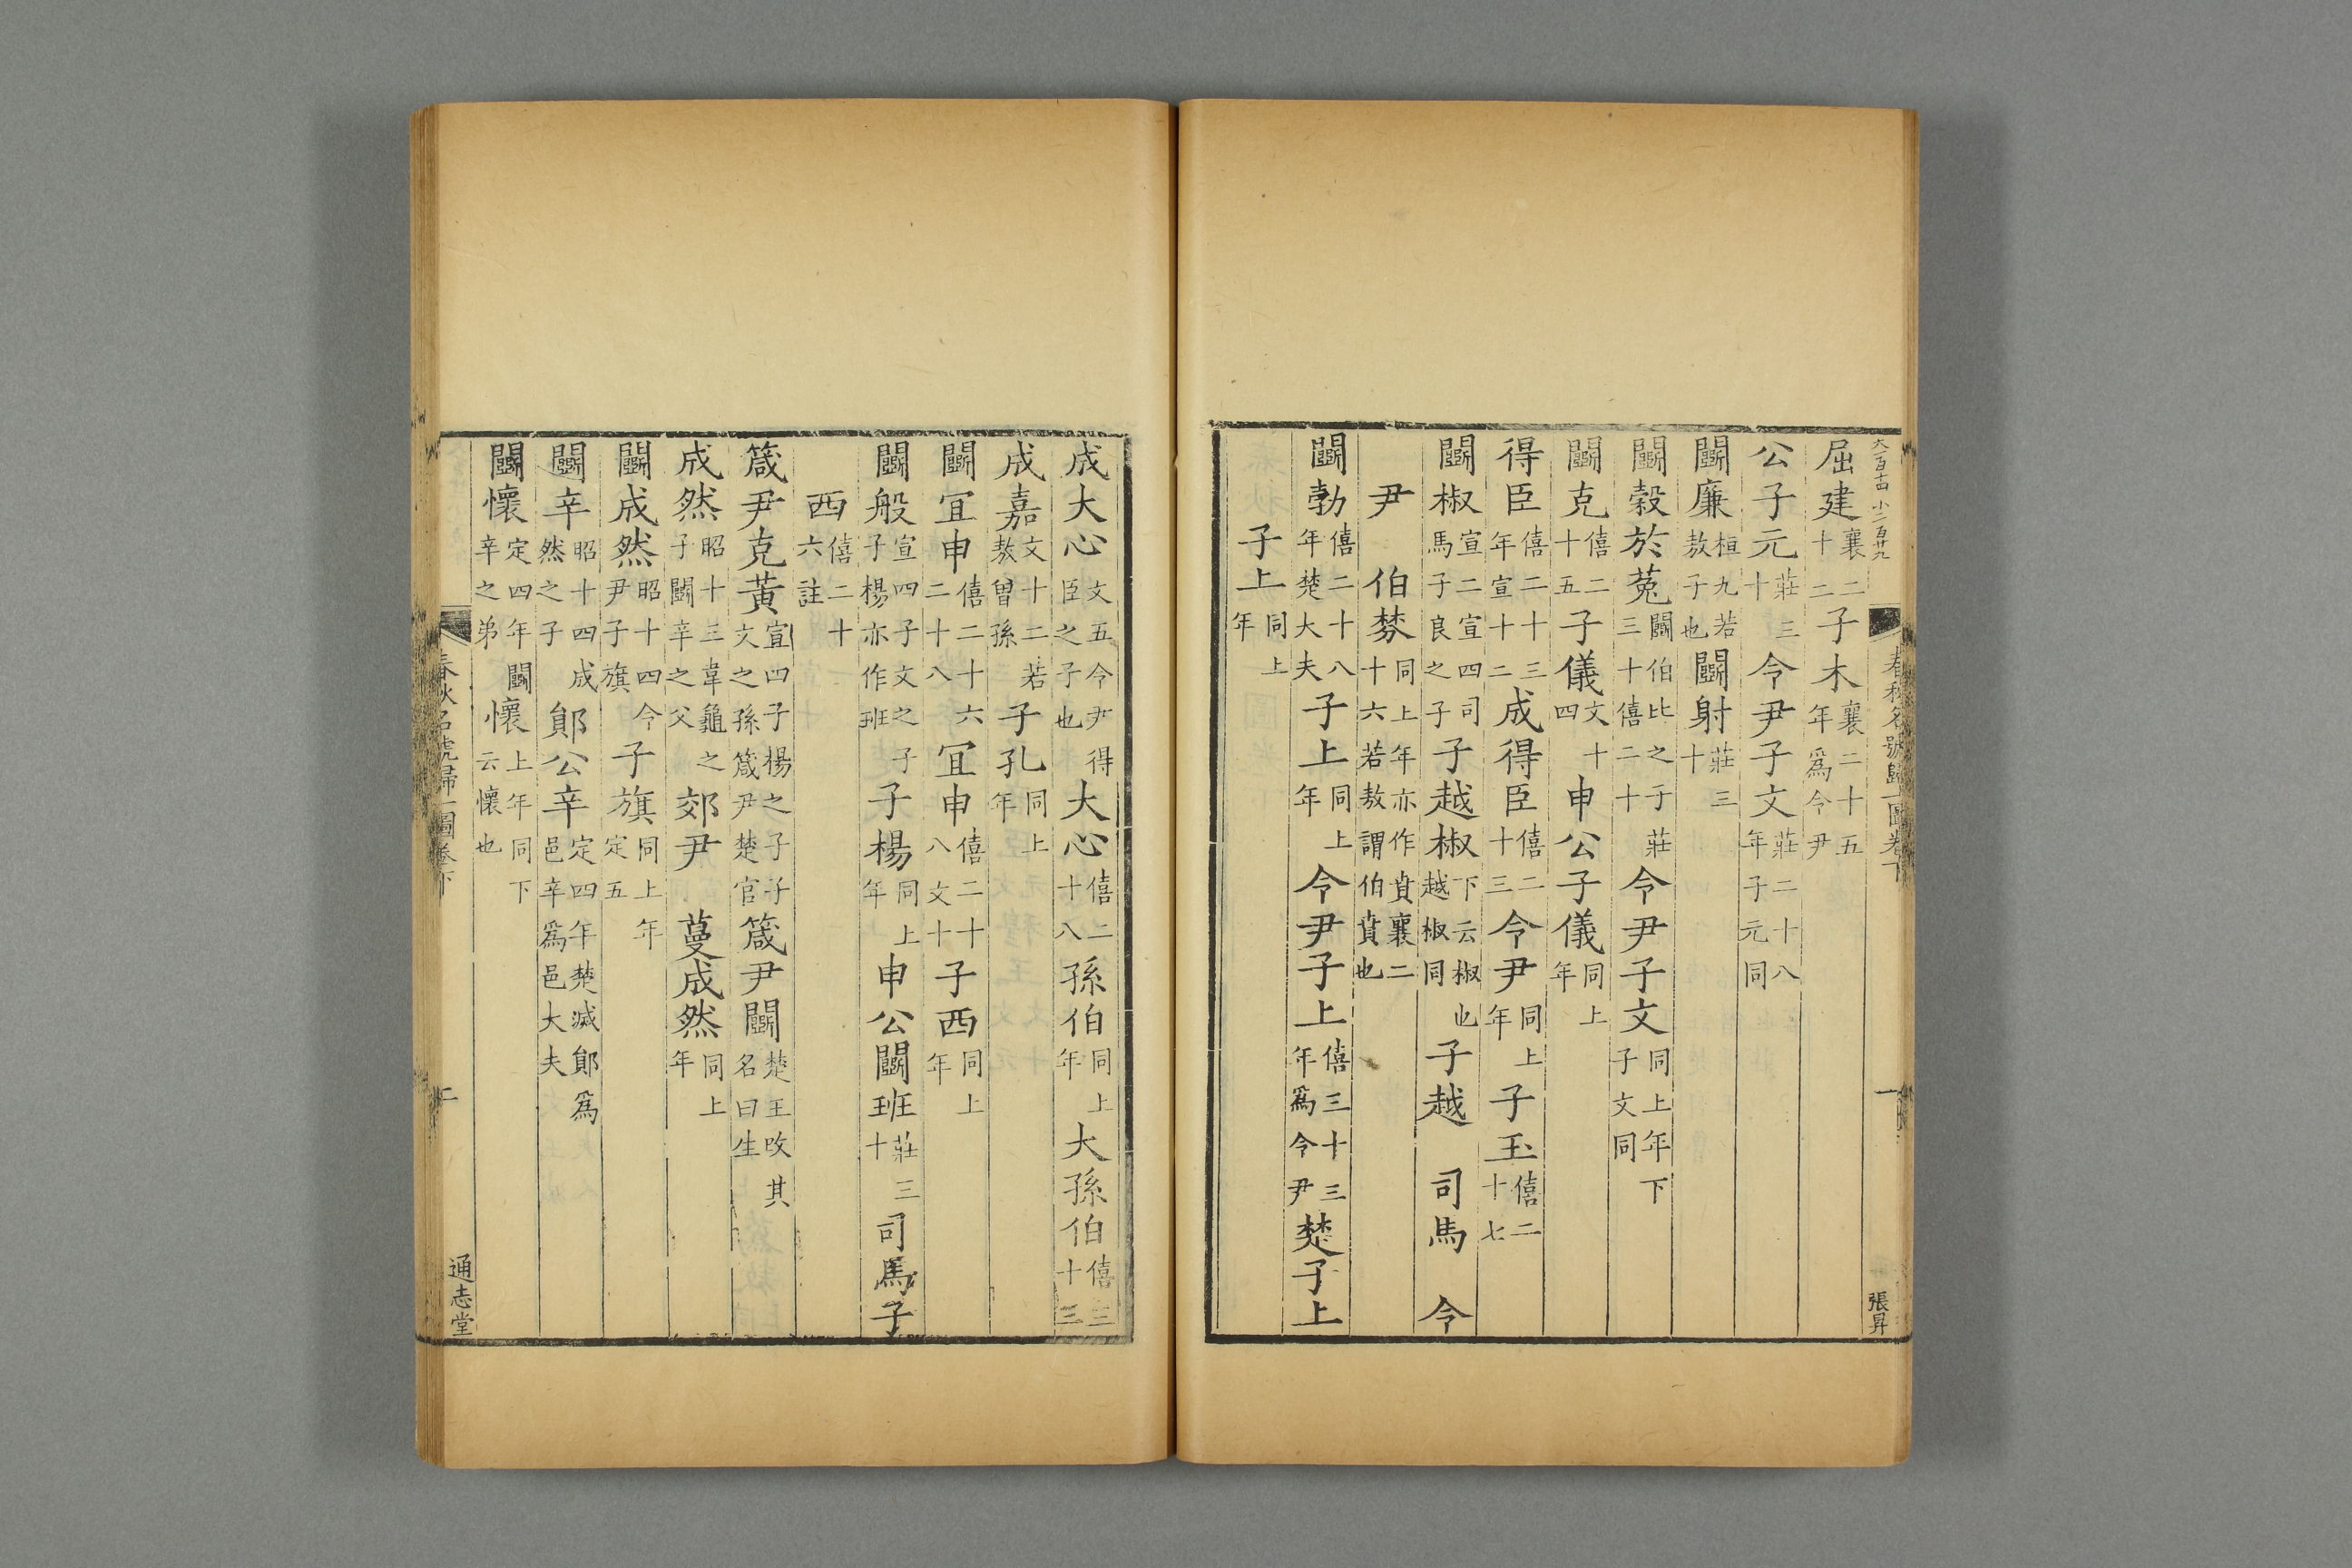 大一百十四 小二百廿九
春秋名號歸一圖卷下 一 張昇
屈建襄二十二子木襄二十五年爲令尹
公子元莊三十令尹子文莊二十八年子元同
鬬廉桓九若敖子也鬬射莊三十
鬬榖於菟鬬伯比之子莊三十僖二十令尹子文同上年下子文同
鬬克僖二十五子儀文十四申公子儀同上年
得臣僖二十三年宣十二成得臣僖二十三令尹同上年子玉僖二十七
鬬椒宣二宣四司馬子良之子子越椒下云椒也越椒同子越 司馬 令
尹 伯棼同上年亦作賁襄二十六若敖謂伯賁也
鬬勃僖二十八年楚大夫子上同上年令尹子上僖三十三年爲令尹楚子上
子上同上年
成大心文五令尹得臣之子也大心僖二十八孫伯同上年大孫伯僖三十三
成嘉文十二若敖曾孫子孔同上年
鬬宜申僖二十六二十八宜申僖二十八文十子西同上年
鬬般宣四子文之子子楊亦作班子楊同上年申公鬬班莊三十司馬子
西僖二十六註
箴尹克黃宣四子楊之子子文之孫箴尹楚官箴尹鬬楚王改其名曰生
成然昭十三韋龜之子鬬辛之父郊尹 蔓成然同上年
鬬成然昭十四令尹子旗子旗同上年定五
鬬辛昭十四成然之子鄖公辛定四年楚滅鄖爲邑辛爲邑大夫
鬬懷定四年辛之弟鬬懷上年同下云懷也
春秋名號歸一圖卷下 二 通志堂